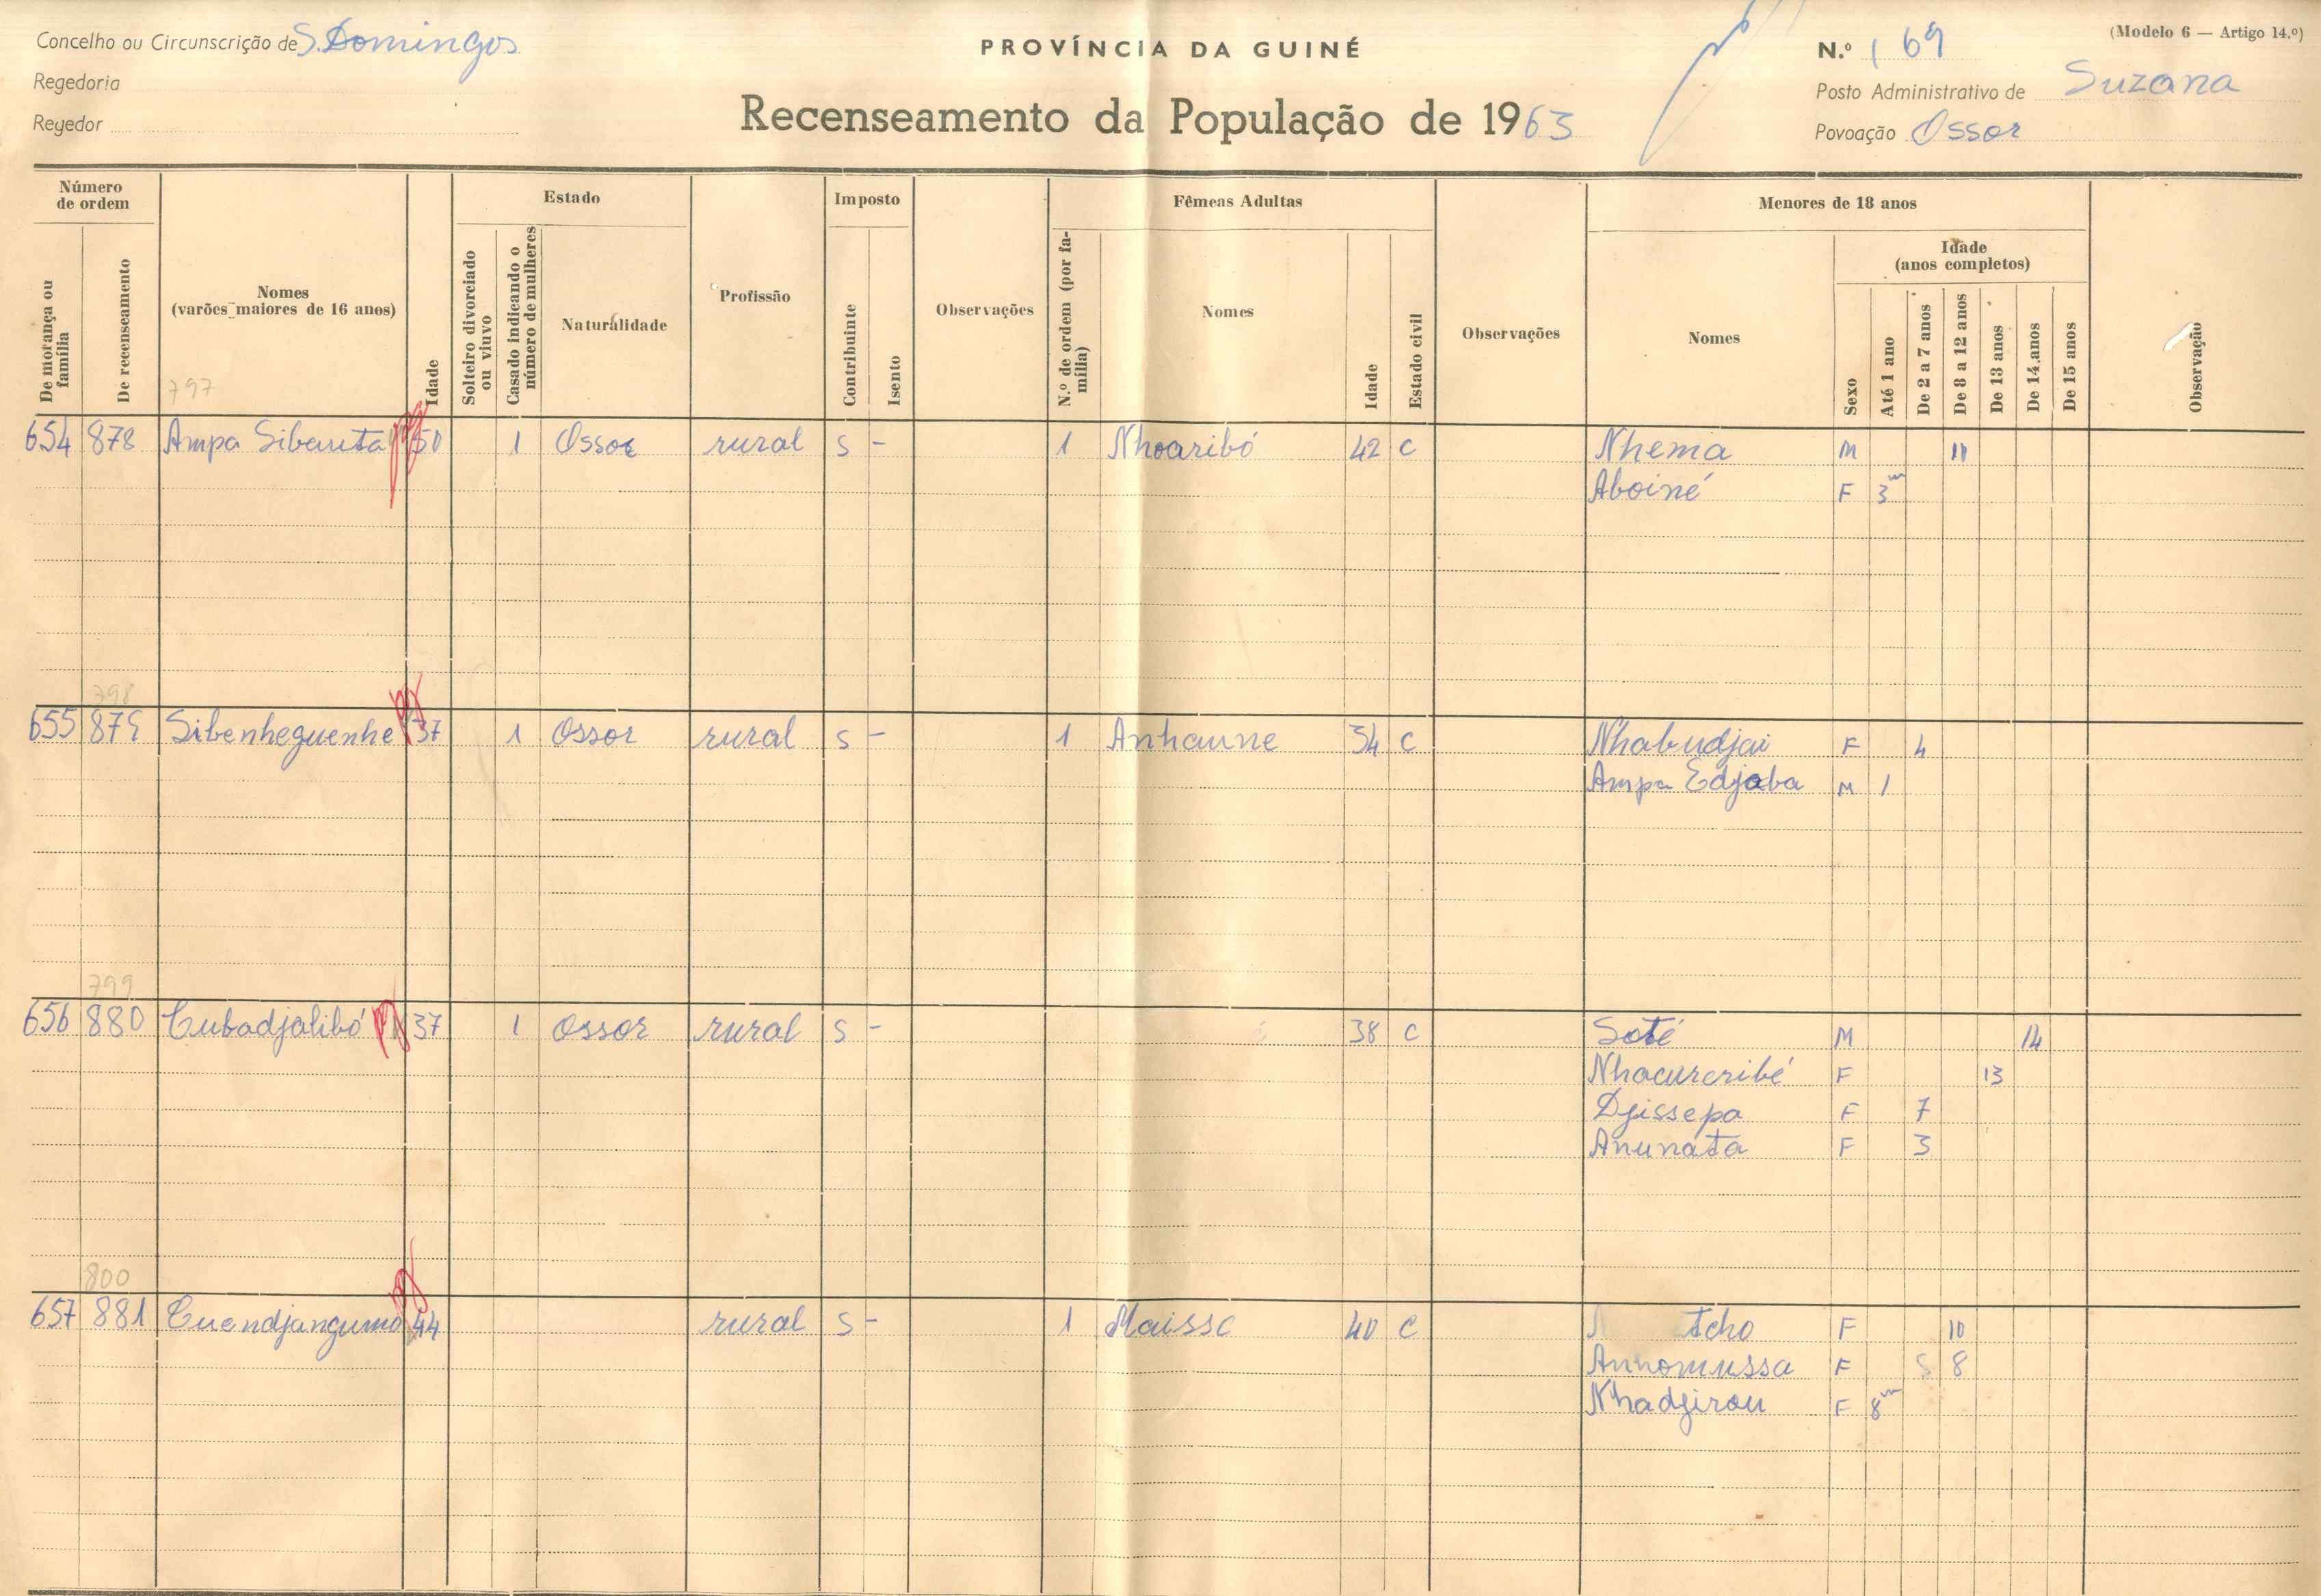 Concelho ou Circunscrição de S. Domingos
PROVÍNCIA DA GUINÉ
N.º 169
(Modelo 6 — Artigo 14.º)
Regedoria
Posto Administrativo de Suzana
Regedor
Recenseamento da População de 1963
Povoação Ossor
Número de ordem
Estado
Imposto
Fêmeas Adultas
Menores de 18 anos
De morança ou família
De recenseamento
Nomes (varões maiores de 16 anos)
Idade
Solteiro divorciado ou viuvo
Casado indicando o número de mulheres
Naturalidade
Profissão
Contribuinte
Isento
Observações
N.º de ordem (por família)
Nomes
Idade
Estado civil
Observações
Nomes
Sexo
Idade (anos completos)
Até 1 ano
De 2 a 7 anos
De 8 a 12 anos
De 13 anos
De 14 anos
De 15 anos
Observação
797
654 878 Ampa Sibauta 50 1 Ossor rural S - 1 Nhoaribó 42 C Nhema M 11
Aboiné F 3m
798
655 879 Sibenheguenhe 37 1 Ossor rural S - 1 Anhaune 34 C Nhabudjai F 4
Ampa Edjaba M 1
799
656 880 Cubadjalibó 37 1 Ossor rural S - 38 C Soté M 14
Nhacureribé F 13
Djissepa F 7
Anunata F 3
800
657 881 Cuendjangumo 44 rural S - 1 Maisse 40 C tcho F 10
Annomussa F 8
Nhadjirou F 8m